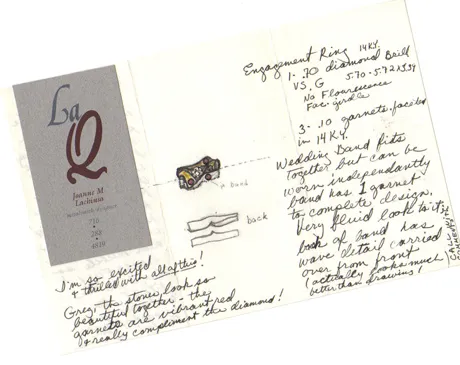 La
Q
Joanne M
Lachinia
metalsmith-designer
Engagement Ring 14KY.
1- .70 diamond Brill
VS. G 5.70-5.72x3.39
No Flourescence
Fac. girdle
3- .10 garnets, faceted
in 14KY.
Wedding Band fits
together but can be
worn independantly
band has 1 garnet
to complete design.
Very fluid look to it;
back of band has
wave detail carried
over from front
(actually looks much
better than drawing!
band
back
I'm so excited
+ thrilled with all of this!
Greg, the stones look so
beautiful together - the
garnets are vibrant red
+ really compliment the diamond!